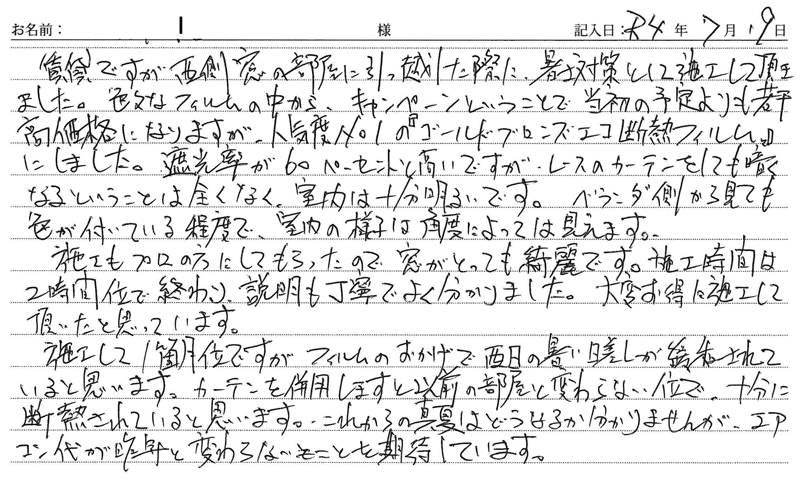 お名前： 様 記入日：R4年7月19日
賃貸ですが西側窓の部屋に引っ越した際に、暑さ対策として施工して頂き
ました。色々なフィルムの中から、キャンペーンということで当初の予定よりも若干
高価格になりますが、人気度No1の『ゴールドブロンズエコ断熱フィルム』
にしました。遮光率が60パーセントと高いですが、レースのカーテンをしても暗く
なるということは全くなく、室内は十分明るいです。ベランダ側から見ても
色が付いている程度で、室内の様子は角度によっては見えます。
施工もプロの方にしてもらったので、窓がとっても綺麗です。施工時間は
2時間位で終わり、説明も丁寧でよく分かりました。大変お得に施工して
頂いたと思っています。
施工して1箇月位ですがフィルムのおかげで西日の暑い日差しが緩和されて
いると思います。カーテンを併用しますと以前の部屋と変わらない位で、十分に
断熱されていると思います。これからの真夏はどうなるか分かりませんが、エア
コン代が昨年と変わらないことを期待しています。